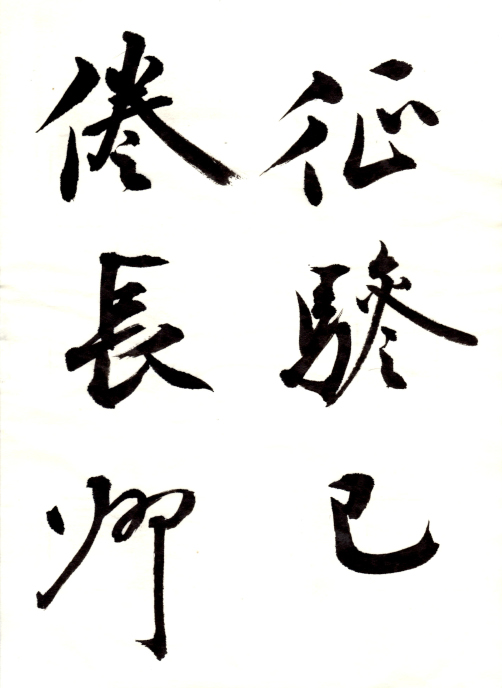 征驂已
倦長卿